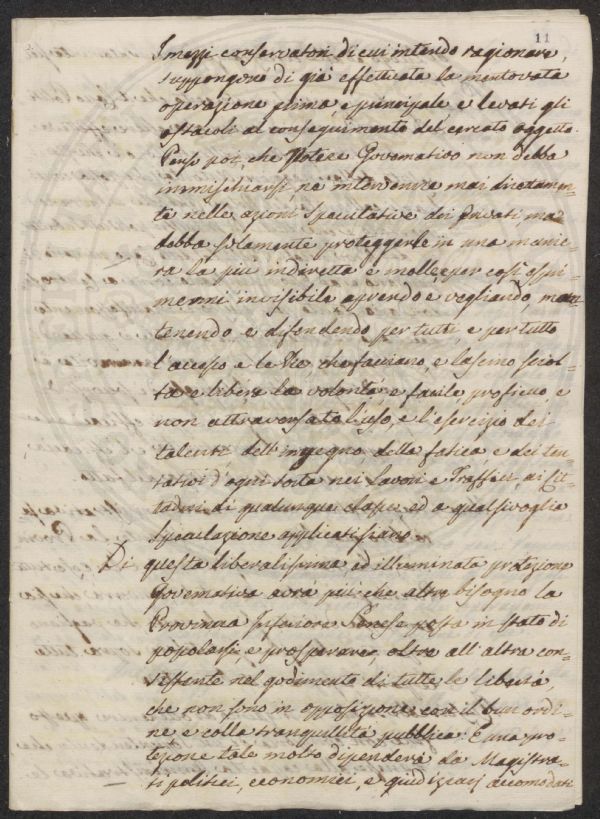 11
I mezzi conservatori di cui intendo ragionare,
suppongono di già effettuata la mentovata
operazione prima, e principale e levati gli
ostacoli al conseguimento del cercato oggetto.
Penso poi, che Potere Governativo non debba
immischiarsi, ne intervenire mai direttamen=
te nelle azioni speculative dei Privati, ma
debba solamente proteggerle in una manie=
ra la più indiretta e molle, e per così espri
mermi invisibile aprendo e vegliando, man
tenendo, e difendendo per tutti, e per tutto
l'accesso e le Vie che facciano, e lascino sciol=
ta e libera la volontà, e facile proficuo, e
non attraversato l'uso, e l'esercizio dei
talenti dell'ingegno, della fatica e dei ten=
tativi d'ogni sorta nei Lavori e Traffici, ai Cit=
tadini di qualunque classe, ed a qualsivoglia
speculazione applicatissimi.
Di questa liberalissima, ed illuminata protezione
Governativa avrà più che altro bisogno la
Provincia Inferiore Senese posta in stato di
popolarsi e prosperare, oltre all'altra con=
sistente nel godimento di tutte le libertà,
che non sono in opposizione con il buon ordi=
ne e colla tranquillità pubblica. E una pro=
tezione tale molto dipenderà da Magistra=
ti politici, economici, e giudiziarj accomodati